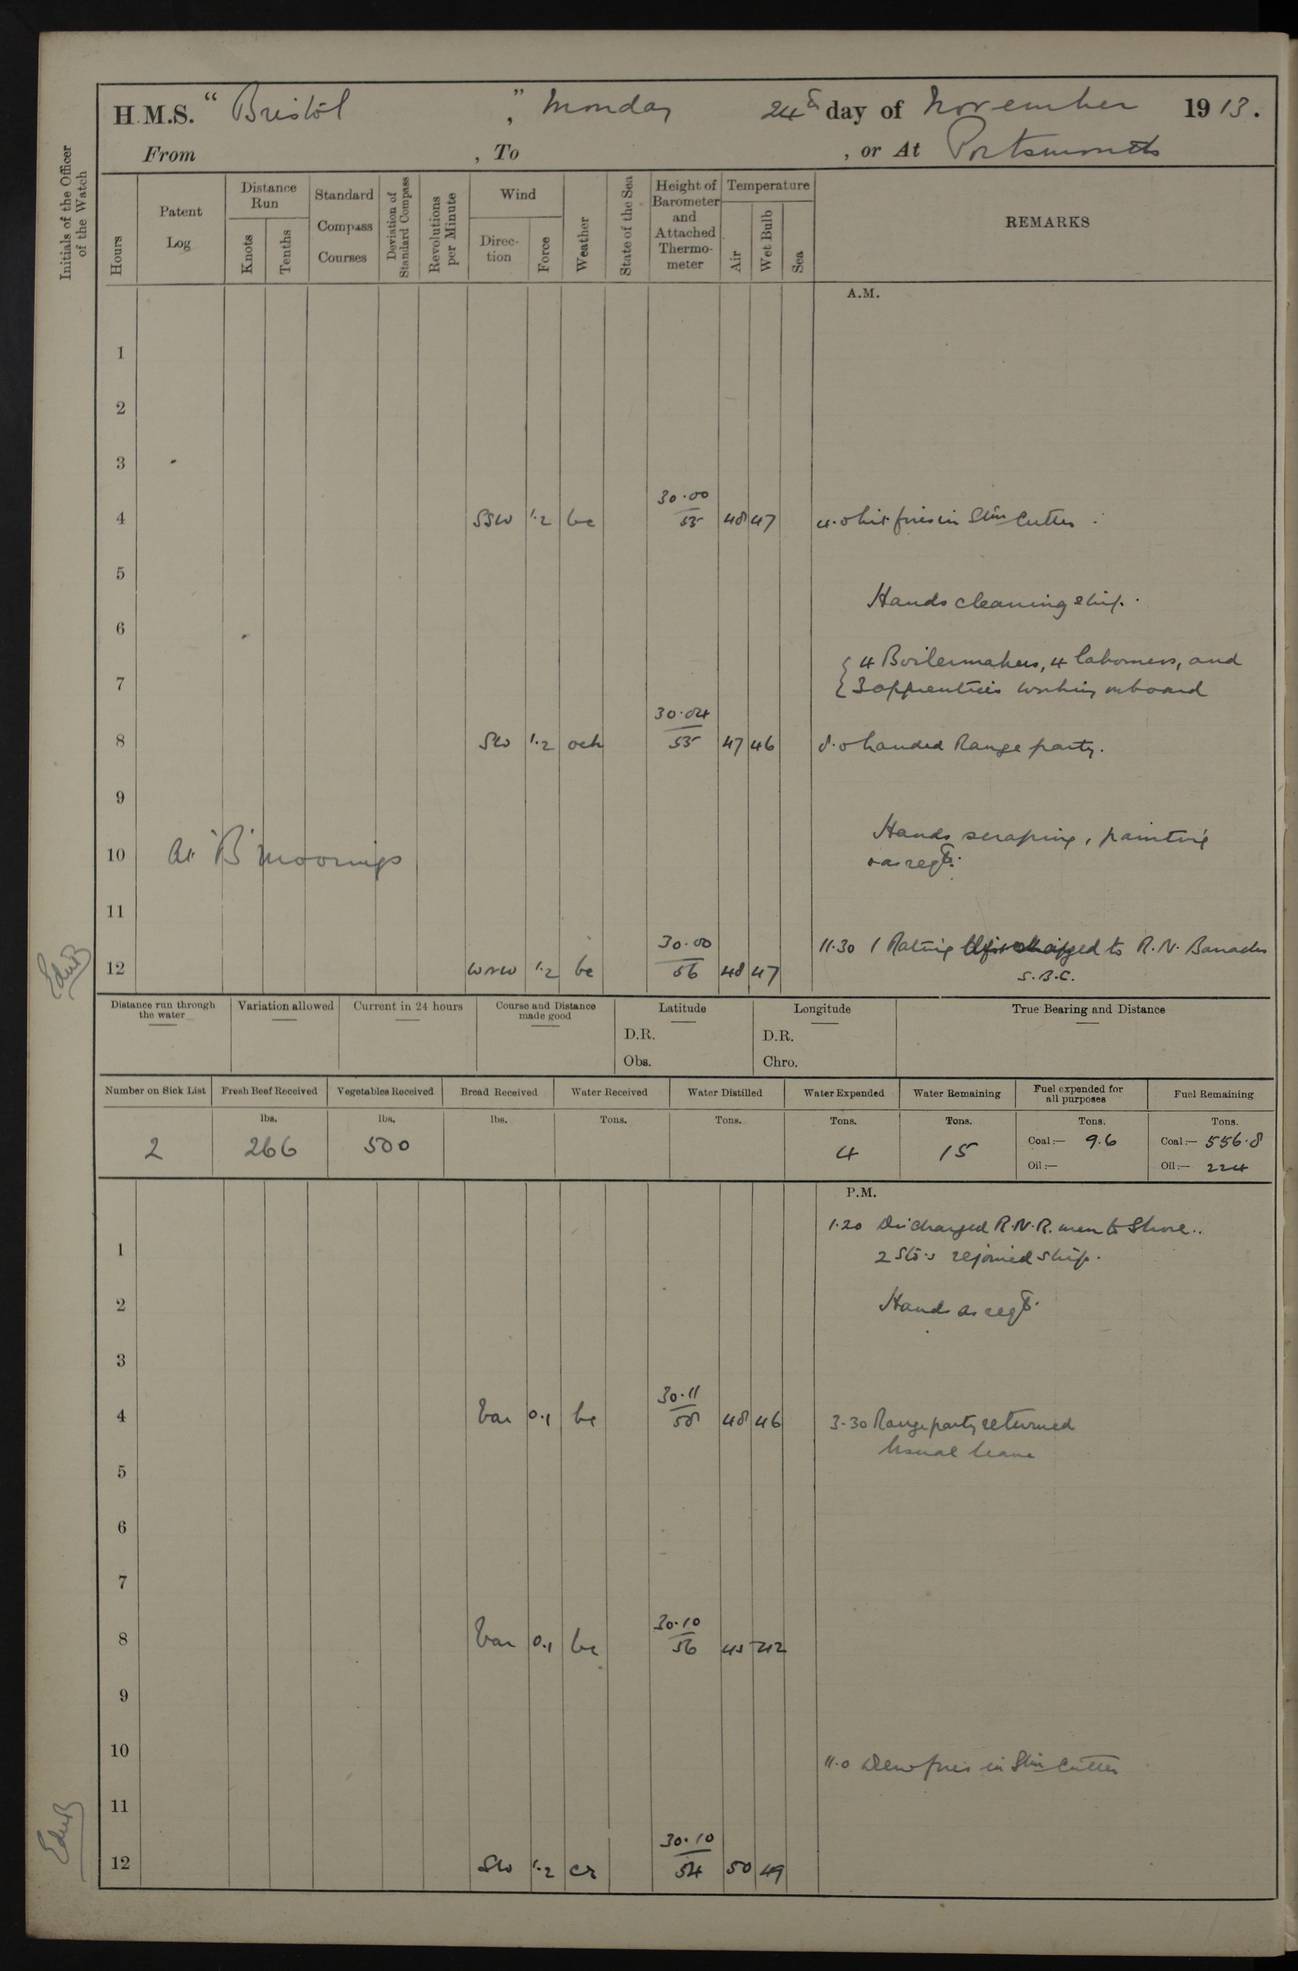 H.M.S. "Bristol", Monday 24th day of November 1913.
From , To , or At Portsmouth
Initials of the Officer of the Watch
Hours
Patent Log
Distance Run
Knots
Tenths
Standard Compass Courses
Deviation of Standard Compass
Revolutions per Minute
Wind
Direc-tion
Force
Weather
State of the Sea
Height of Barometer and Attached Thermo-meter
Temperature
Air
Wet Bulb
Sea
REMARKS
A.M.
1
2
3
30.00
4 SSW 1.2 bc 55 48 47 4.0 Lit fires in Stm Cutter
5
Hands cleaning ship.
6
4 Boilermakers, 4 labourers, and
7 3 apprentices working onboard
30.04
8 SW 1.2 och 55 47 46 8.0 Landed Range party.
9
Hands scraping, painting
10 At 'B' Moorings
& as reqd.
11
30.00 11.30 1 Rating discharged to R.N. Barracks
12 WNW 1.2 bc 56 48 47 S.B.C.
Distance run through the water
Variation allowed
Current in 24 hours
Course and Distance made good
Latitude
D.R.
Obs.
Longitude
D.R.
Chro.
True Bearing and Distance
Number on Sick List
2
Fresh Beef Received
lbs.
266
Vegetables Received
lbs.
500
Bread Received
lbs.
Water Received
Tons.
Water Distilled
Tons.
Water Expended
Tons.
4
Water Remaining
Tons.
15
Fuel expended for all purposes
Tons.
Coal:— 9.6
Oil:—
Fuel Remaining
Tons.
Coal:— 556.8
Oil:— 224
P.M.
1.20 Discharged R.N.R. men to Shore.
1 2 Sto's rejoined ship.
2 Hands as reqd.
3
30.11
4 Var 0.1 bc 58 48 46 3.30 Range party returned
Usual leave
5
6
7
30.10
8 Var 0.1 bc 56 45 42
9
10 11.0 Drew fires in Stm Cutter
11
30.10
12 SW 1.2 cr 54 50 49